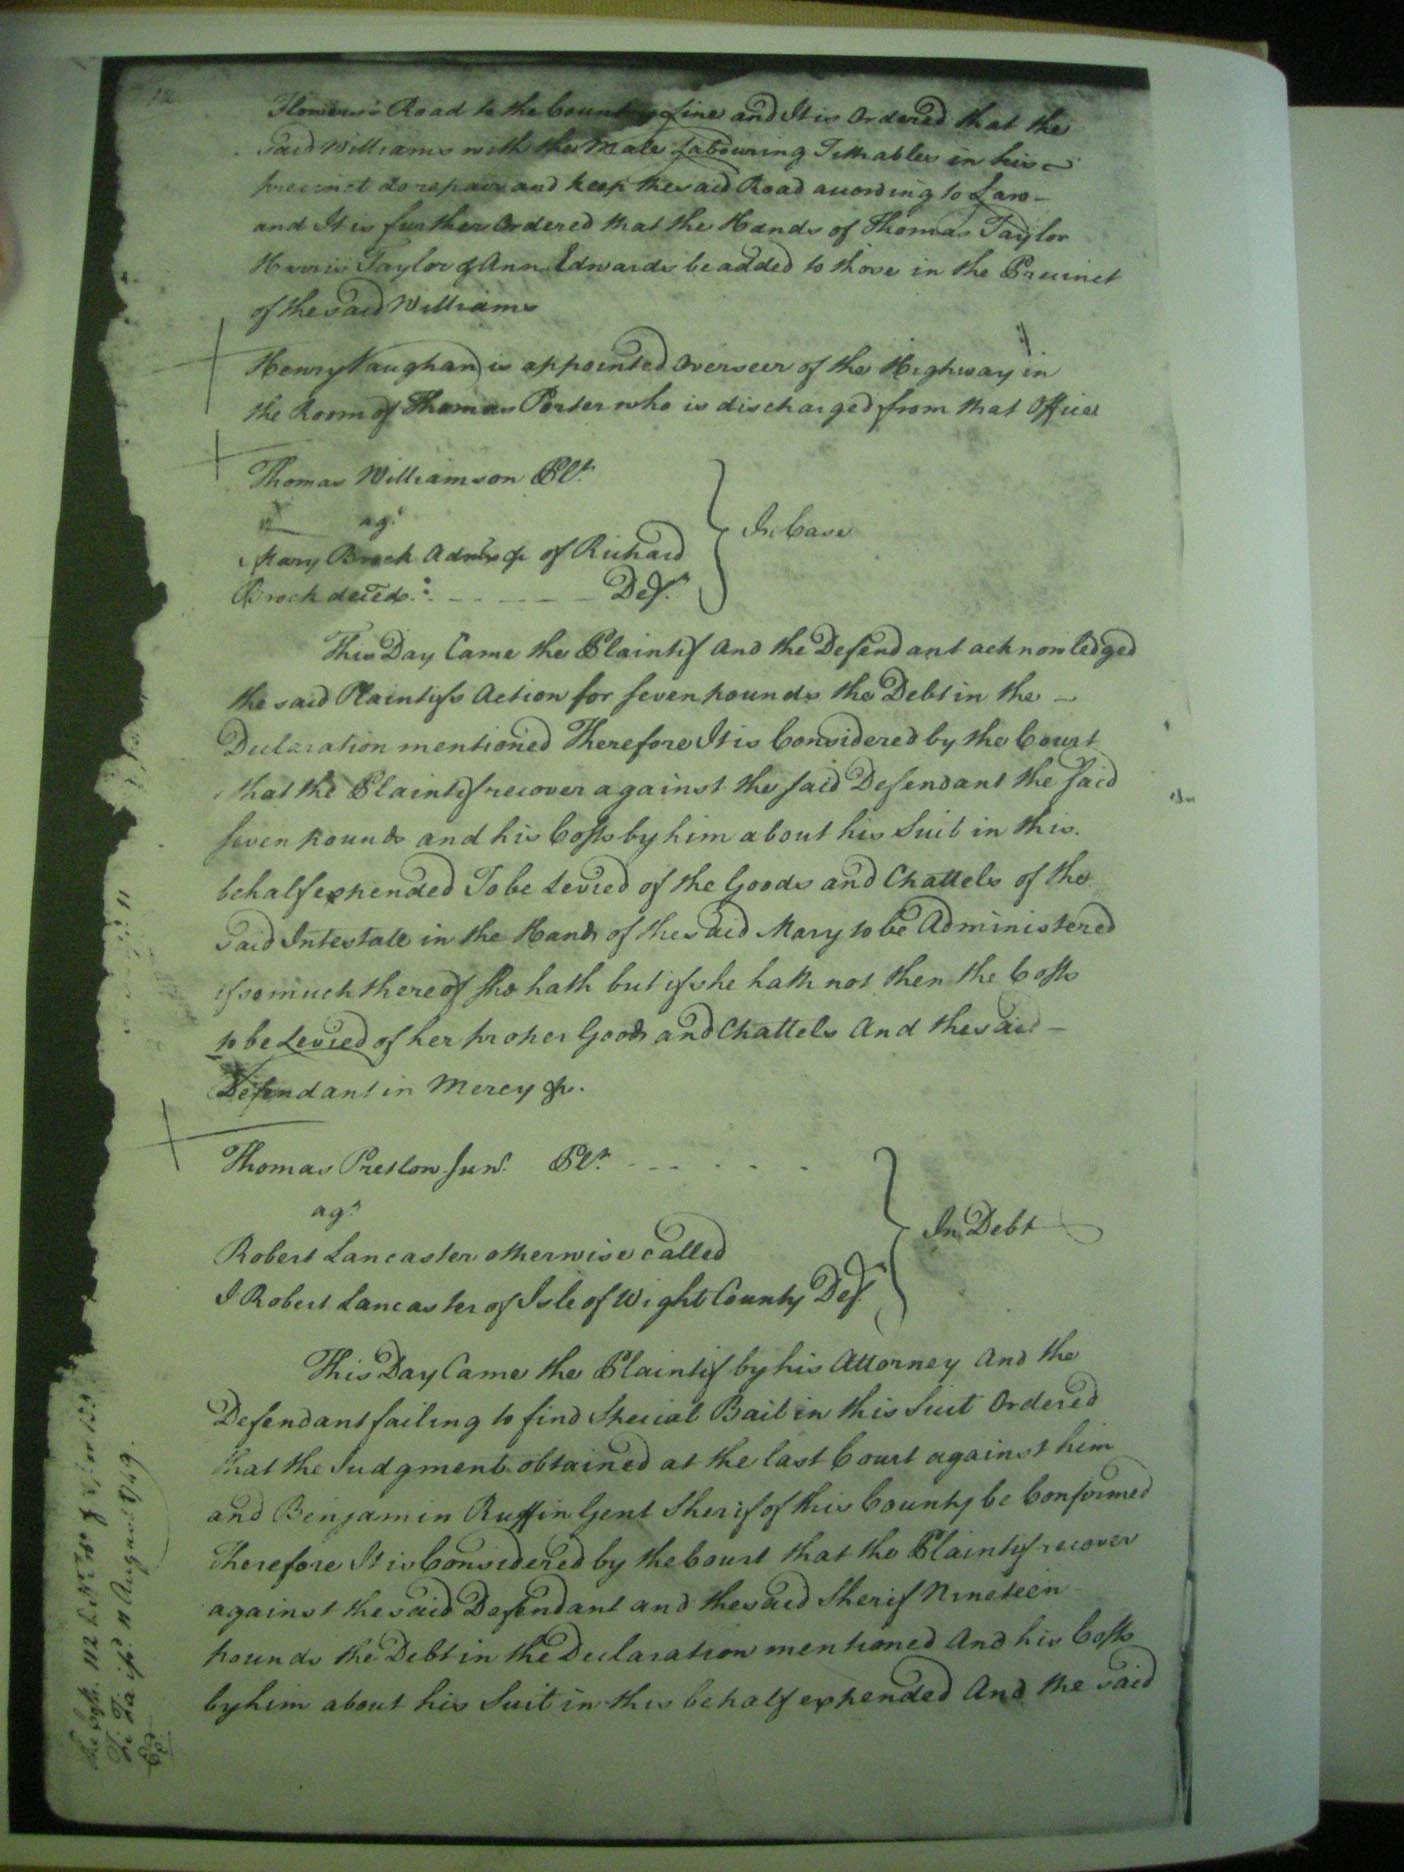 12
Road to the County Line and It is Ordered that the
Said Williams with the Male Labouring Tithables in his
precinct do repair and keep the said Road according to Law -
and It is further Ordered that the Hands of Thomas Taylor
Harris Taylor & Ann Edwards be added to those in the Precinct
of the said Williams
Henry Vaughan is appointed Overseer of the Highway in
the Room of Thomas Porter who is discharged from that Office
Thomas Williamson Plt.
agt
Mary Brock Admrx &c of Richard
Brock deced. - - - - - Deft.
In Case
This Day Came the Plaintif and the Defendant acknowledged
the said Plaintifs Action for seven pounds the Debt in the -
Declaration mentioned Therefore It is Considered by the Court
that the Plaintif recover against the said Defendant the said
seven pounds and his Costs by him about his Suit in this
behalf expended To be Levied of the Goods and Chattels of the
said Intestate in the Hands of the said Mary to be Administered
if so much thereof she hath but if she hath not then the Costs
to be Levied of her proper Goods and Chattels And the said -
Defendant in Mercy &c.
Thomas Preston Junr. Plt. - - - - -
agt
Robert Lancaster otherwise called
I Robert Lancaster of Isle of Wight County Deft
In Debt
This Day Came the Plaintif by his Attorney And the
Defendant failing to find Special Bail in this Suit Ordered
that the Judgment obtained at the last Court against him
and Benjamin Ruffin Gent Sherif of this County be Confirmed
Therefore It is Considered by the Court that the Plaintif recover
against the said Defendant and the said Sherif Nineteen
pounds the Debt in the Declaration mentioned And his Costs
by him about his Suit in this behalf expended And the said
112
Fi Fa issd. 11 August 1749.